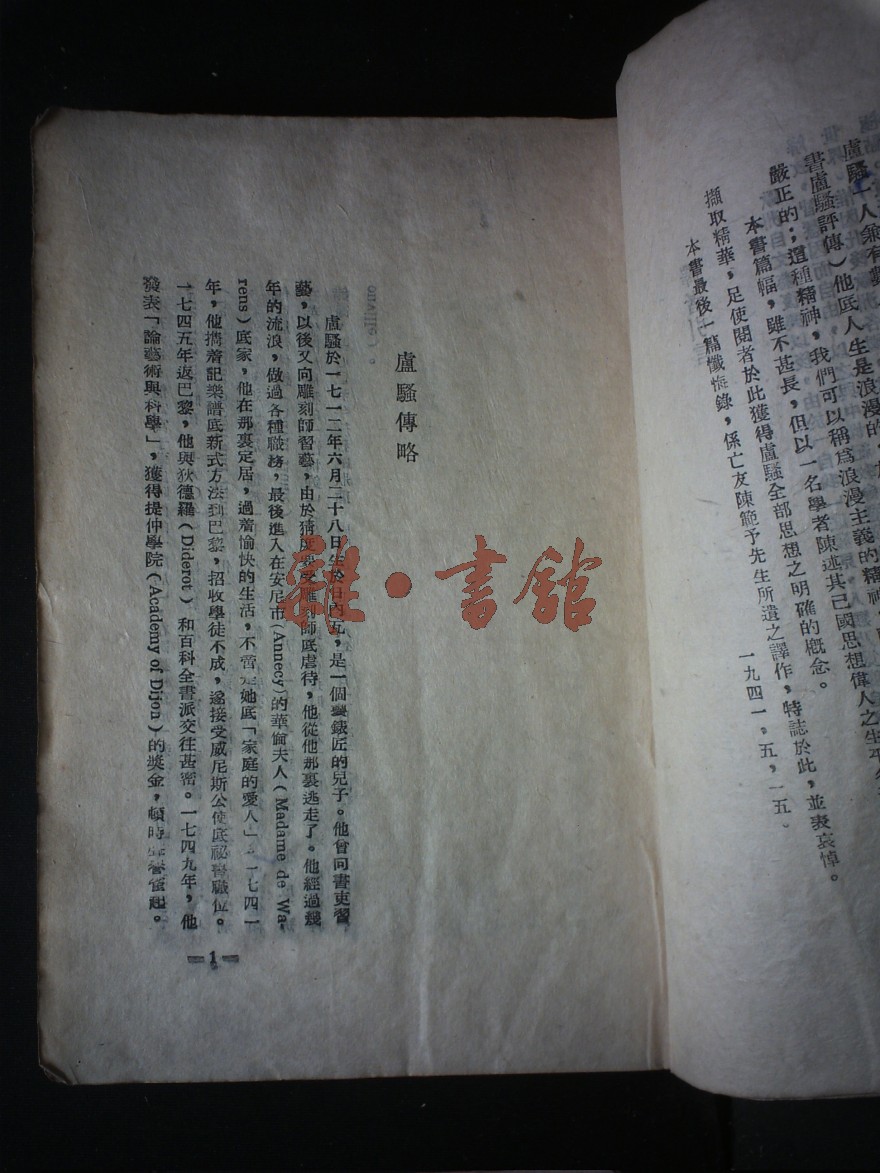 盧騷一人兼有
書盧騷評傳）他底人生是浪漫的，
嚴正的；這種精神，我們可以稱爲浪漫主義的精神，
本書篇幅，雖不甚長，但以一名學者陳述其己國思想偉人之生平
擷取精華，足使閱者於此獲得盧騷全部思想之明確的概念。
本書最後一篇懺悔錄，係亡友陳範予先生所遺之譯作，特誌於此，並表哀悼。
一九四一，五，一五。
盧騷傳略
盧騷於一七一二年六月二十八日生於日內瓦，是一個鐘錶匠的兒子。他曾向書吏習
藝，以後又向雕刻師習藝，由於受雕刻師底虐待，他從他那裏逃走了。他經過幾
年的流浪，做過各種職務，最後進入在安尼市（Annecy）的華倫夫人（Madame de Wa-
rens）底家，他在那裏定居，過着愉快的生活，不啻是她底「家庭的愛人」。一七四一
年，他攜着記樂譜底新式方法到巴黎，招收學徒不成，遂接受威尼斯公使底祕書職位。
一七四五年返巴黎，他與狄德羅（Diderot）和百科全書派交往甚密。一七四九年，他
發表「論藝術與科學」，獲得提仲學院（Academy of Dijon）的獎金，頓時聲譽雀起。
1
雜·書館